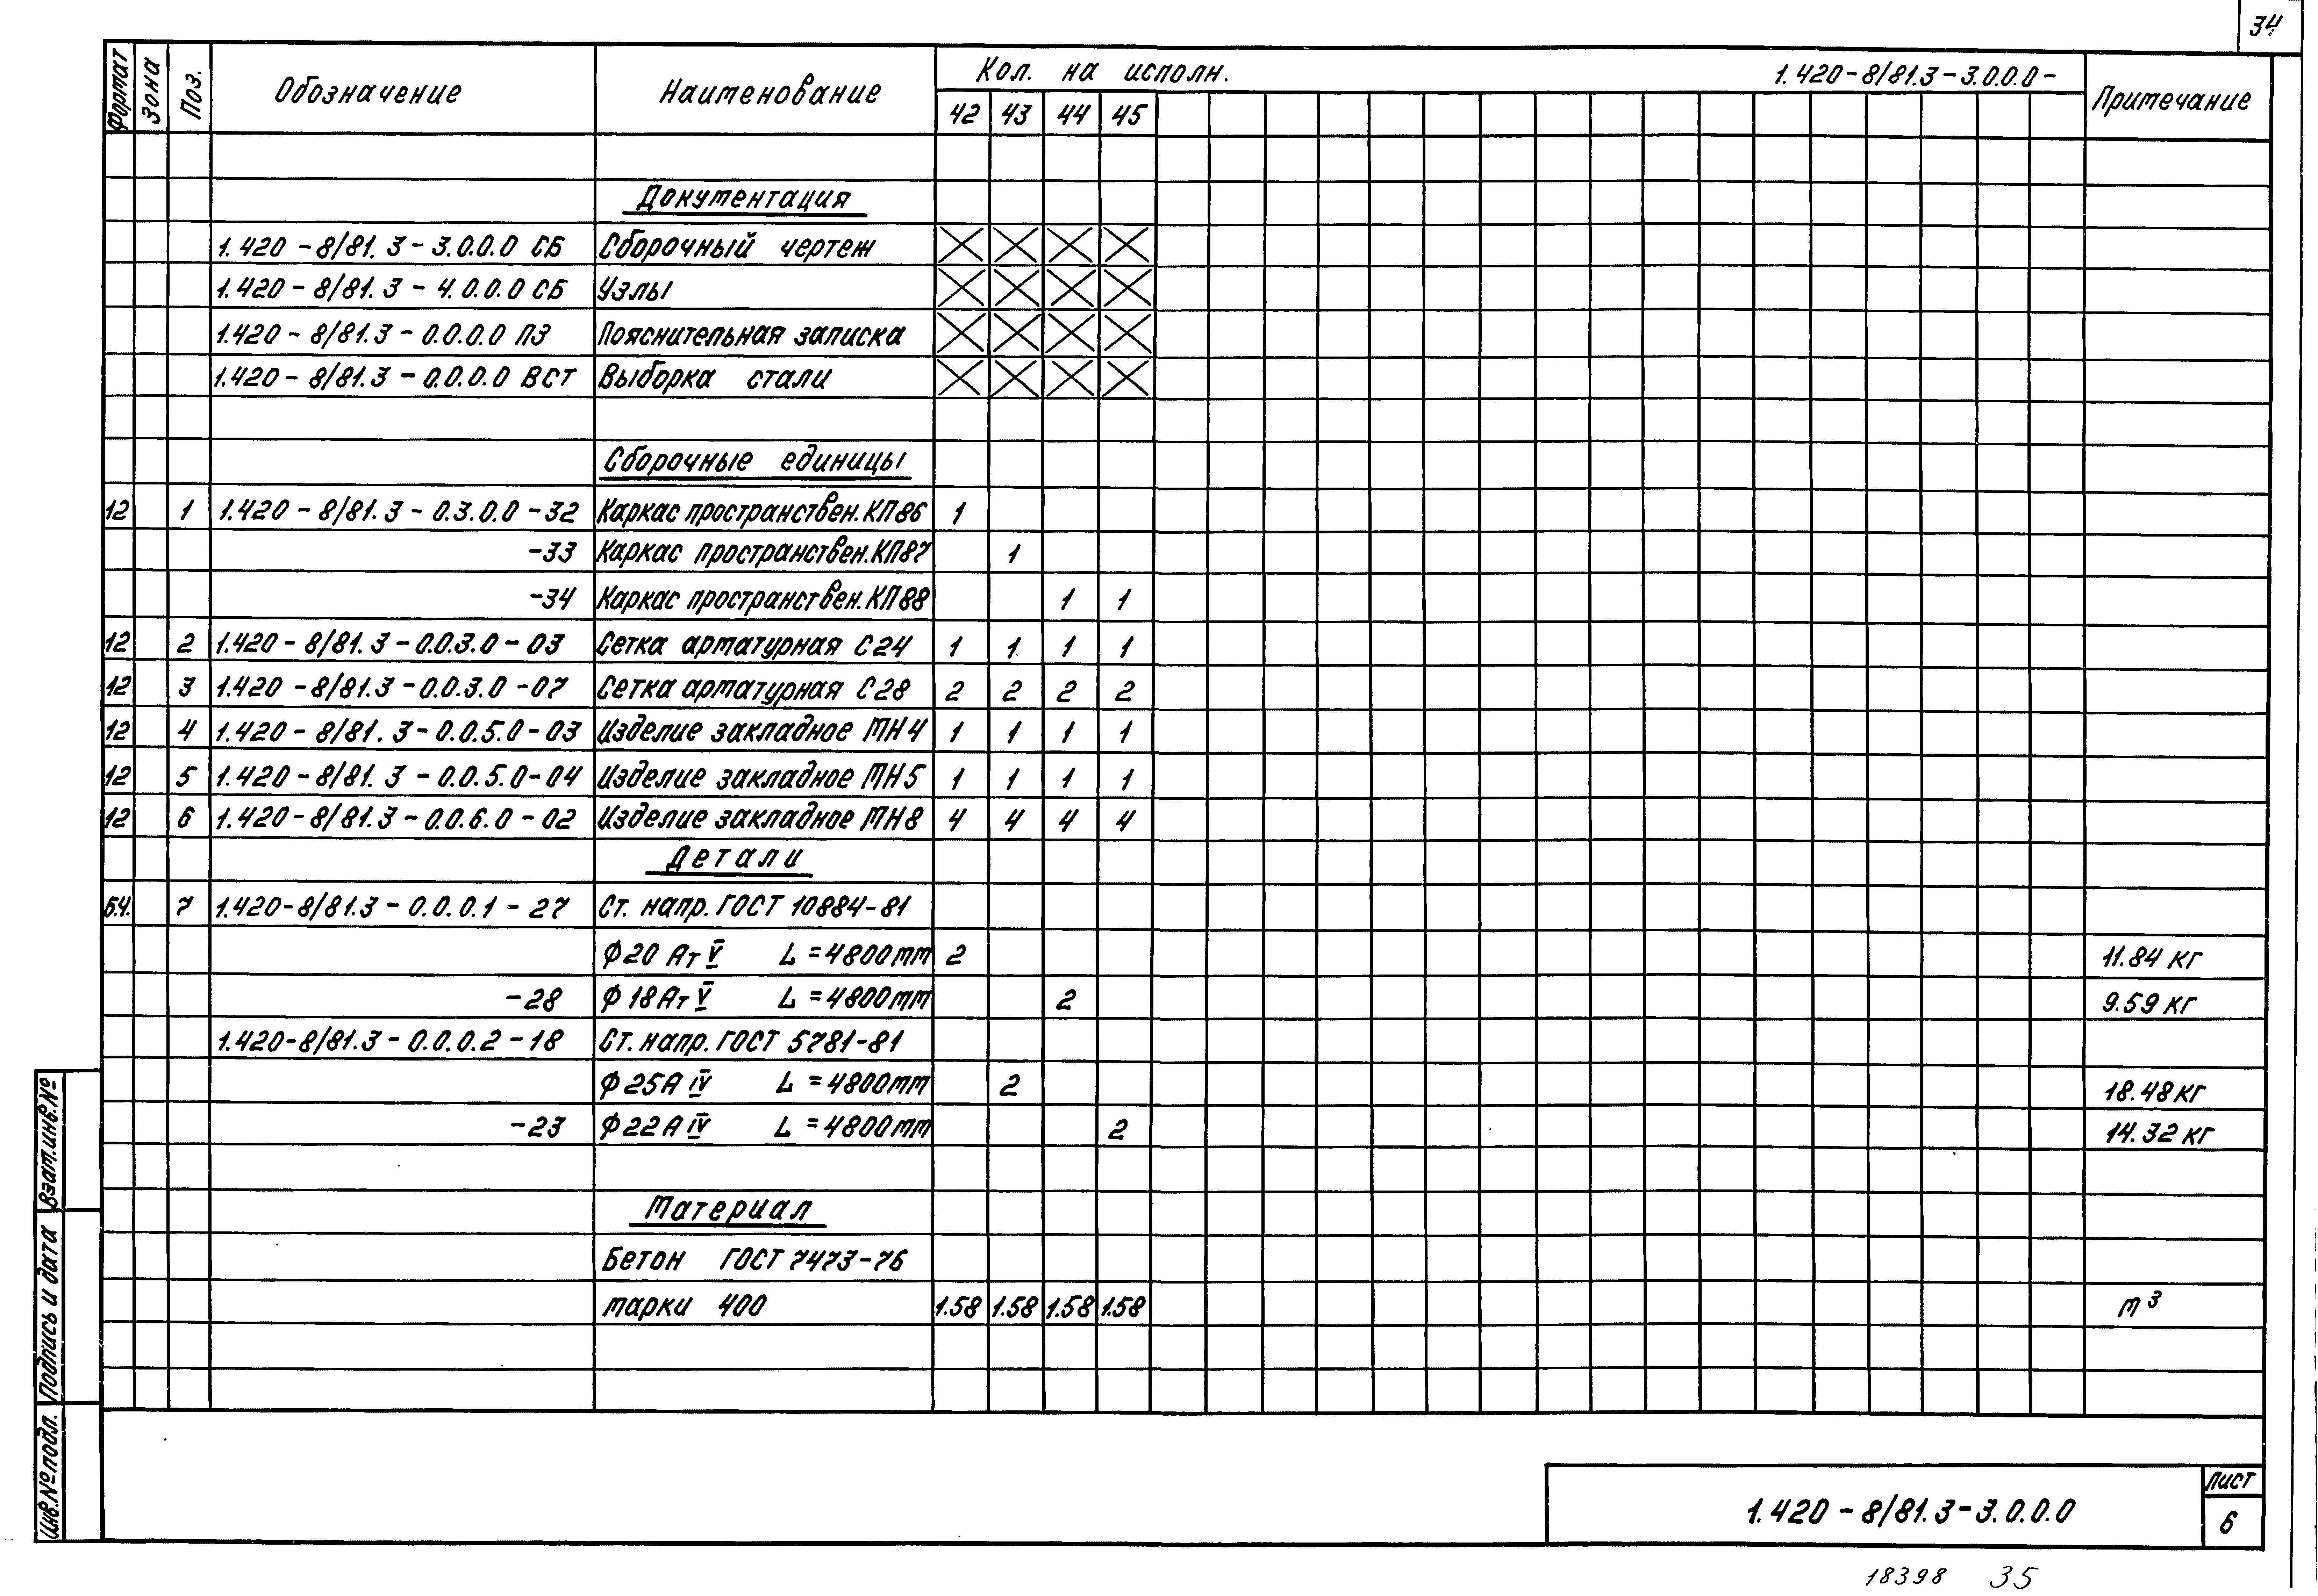 34
Формат Зона Поз. Обозначение Наименование Кол. на исполн. 1.420-8/81.3-3.0.0.0- Примечание
42 43 44 45
Документация
1.420-8/81.3-3.0.0.0 СБ Сборочный чертеж
1.420-8/81.3-4.0.0.0 СБ Узлы
1.420-8/81.3-0.0.0.0 ПЗ Пояснительная записка
1.420-8/81.3-0.0.0.0 ВСТ Выборка стали
Сборочные единицы
12 1 1.420-8/81.3-0.3.0.0-32 Каркас пространствен. КП86 1
-33 Каркас пространствен. КП87 1
-34 Каркас пространствен. КП88 1 1
12 2 1.420-8/81.3-0.0.3.0-03 Сетка арматурная С24 1 1 1 1
12 3 1.420-8/81.3-0.0.3.0-07 Сетка арматурная С28 2 2 2 2
12 4 1.420-8/81.3-0.0.5.0-03 Изделие закладное МН4 1 1 1 1
12 5 1.420-8/81.3-0.0.5.0-04 Изделие закладное МН5 1 1 1 1
12 6 1.420-8/81.3-0.0.6.0-02 Изделие закладное МН8 4 4 4 4
Детали
Б.Ч. 7 1.420-8/81.3-0.0.0.1-27 Ст. напр. ГОСТ 10884-81
Ф20 Ат V L=4800мм 2 11.84 кг
-28 Ф18 Ат V L=4800мм 2 9.59 кг
1.420-8/81.3-0.0.0.2-18 Ст. напр. ГОСТ 5781-81
Ф25А IV L=4800мм 2 18.48 кг
-23 Ф22А IV L=4800мм 2 14.32 кг
Материал
Бетон ГОСТ 7473-76
марки 400 1.58 1.58 1.58 1.58 м³
Взам.инв.№
Подпись и дата
Инв.№ подл.
1.420-8/81.3-3.0.0.0
Лист
6
18398 35